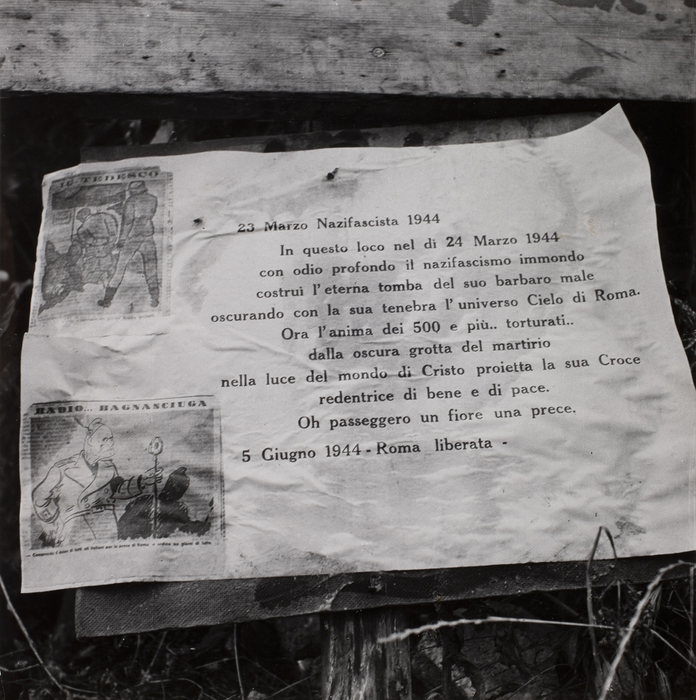 IL TEDESCO
23 Marzo Nazifascista 1944
In questo loco nel di 24 Marzo 1944
con odio profondo il nazifascismo immondo
costrui l'eterna tomba del suo barbaro male
oscurando con la sua tenebra l'universo Cielo di Roma.
Ora l'anima dei 500 e più.. torturati..
dalla oscura grotta del martirio
nella luce del mondo di Cristo proietta la sua Croce
redentrice di bene e di pace.
Oh passeggero un fiore una prece.
5 Giugno 1944 - Roma liberata -
RADIO... BAGNASCIUGA